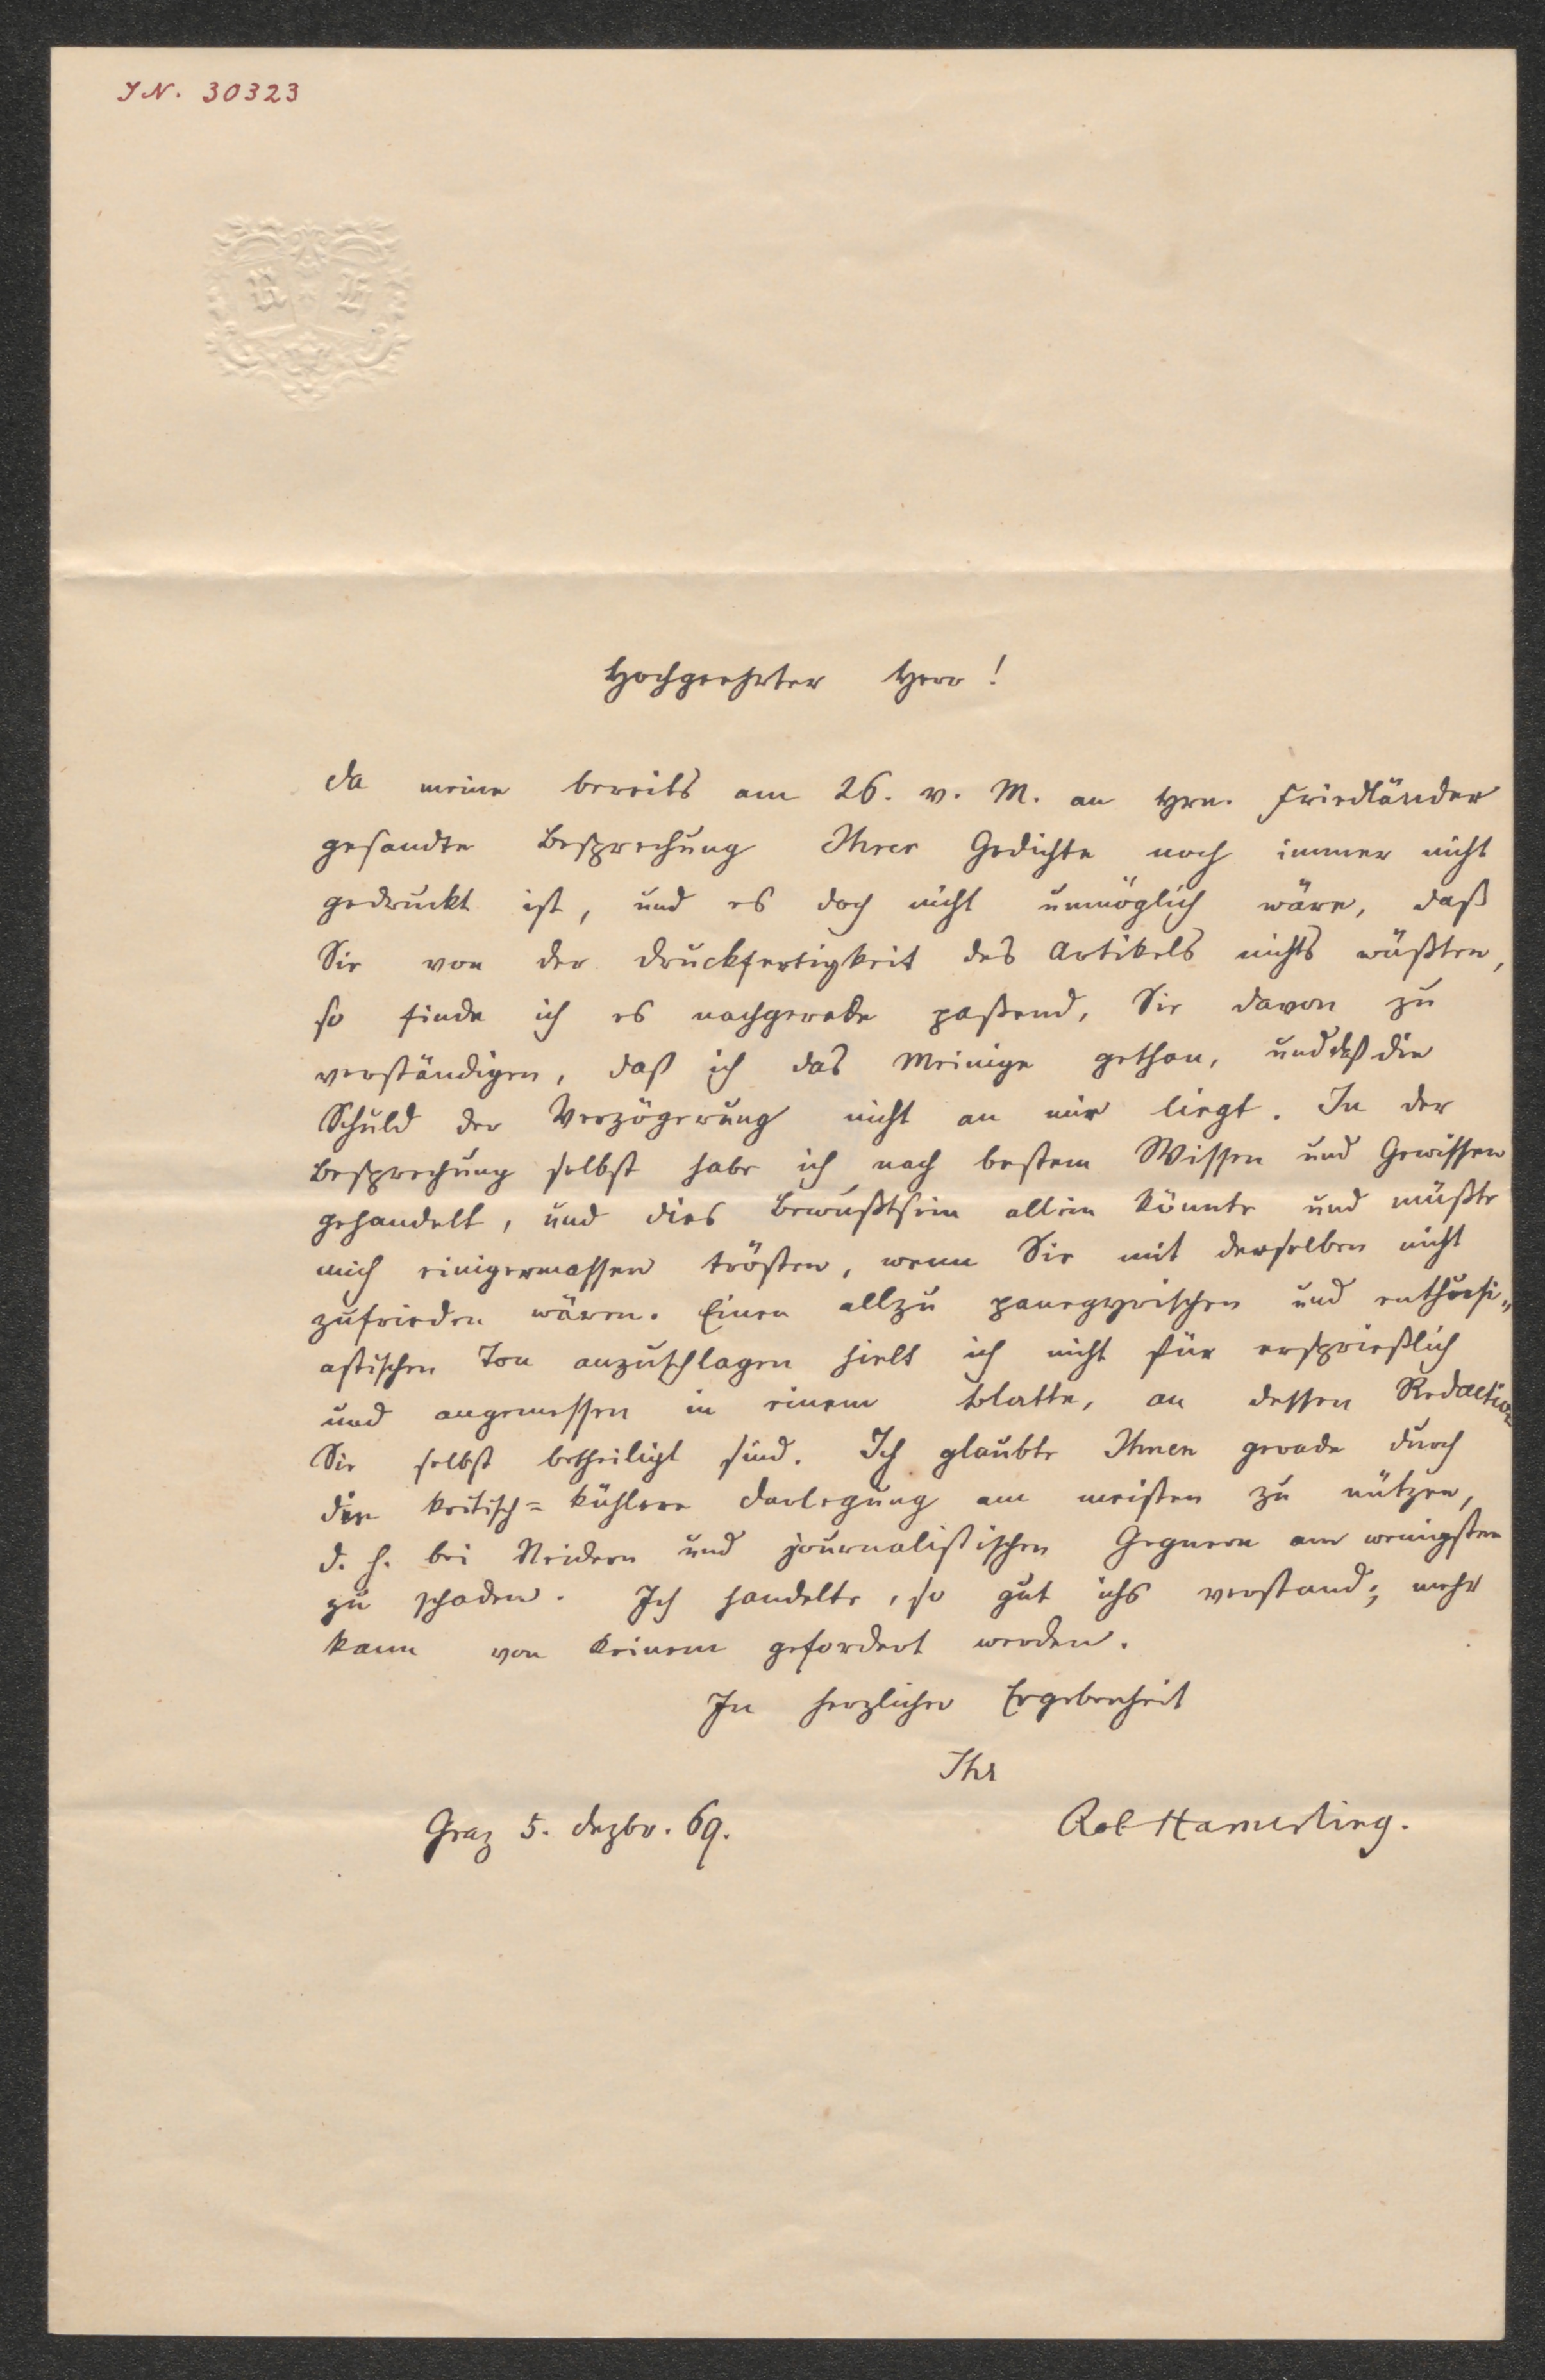 IN. 30323
R H
Hochgeehrter Herr!
Da meine bereits am 26. v. M. an Hrn. Friedländer
gesandte Besprechung Ihrer Gedichte noch immer nicht
gedruckt ist, und es doch nicht unmöglich wäre, daß
Sie von der Druckfertigkeit des Artikels nichts wüßten,
so finde ich es nachgerade paßend, Sie davon zu
verständigen, daß ich das Meinige gethan, und daß die
Schuld der Verzögerung nicht an mir liegt. In der
Besprechung selbst habe ich nach bestem Wissen und Gewissen
gehandelt, und dies Bewußtsein allein könnte und müßte
mich einigermassen trösten, wenn Sie mit derselben nicht
zufrieden wären. Einen allzu panegyrischen und enthusi„
astischen Ton anzuschlagen hielt ich nicht für ersprießlich
und angemessen in einem Blatte, an dessen Redaction
Sie selbst betheiligt sind. Ich glaubte Ihnen gerade durch
die kritisch=kühlere Darlegung am meisten zu nützen,
d. h. bei Neidern und journalistischen Gegnern am wenigsten
zu schaden. Ich handelte, so gut ichs verstand; mehr
kann von keinem gefordert werden.
In herzlicher Ergebenheit
Ihr
Graz 5. Dezbr. 69. Rob Hamerling.